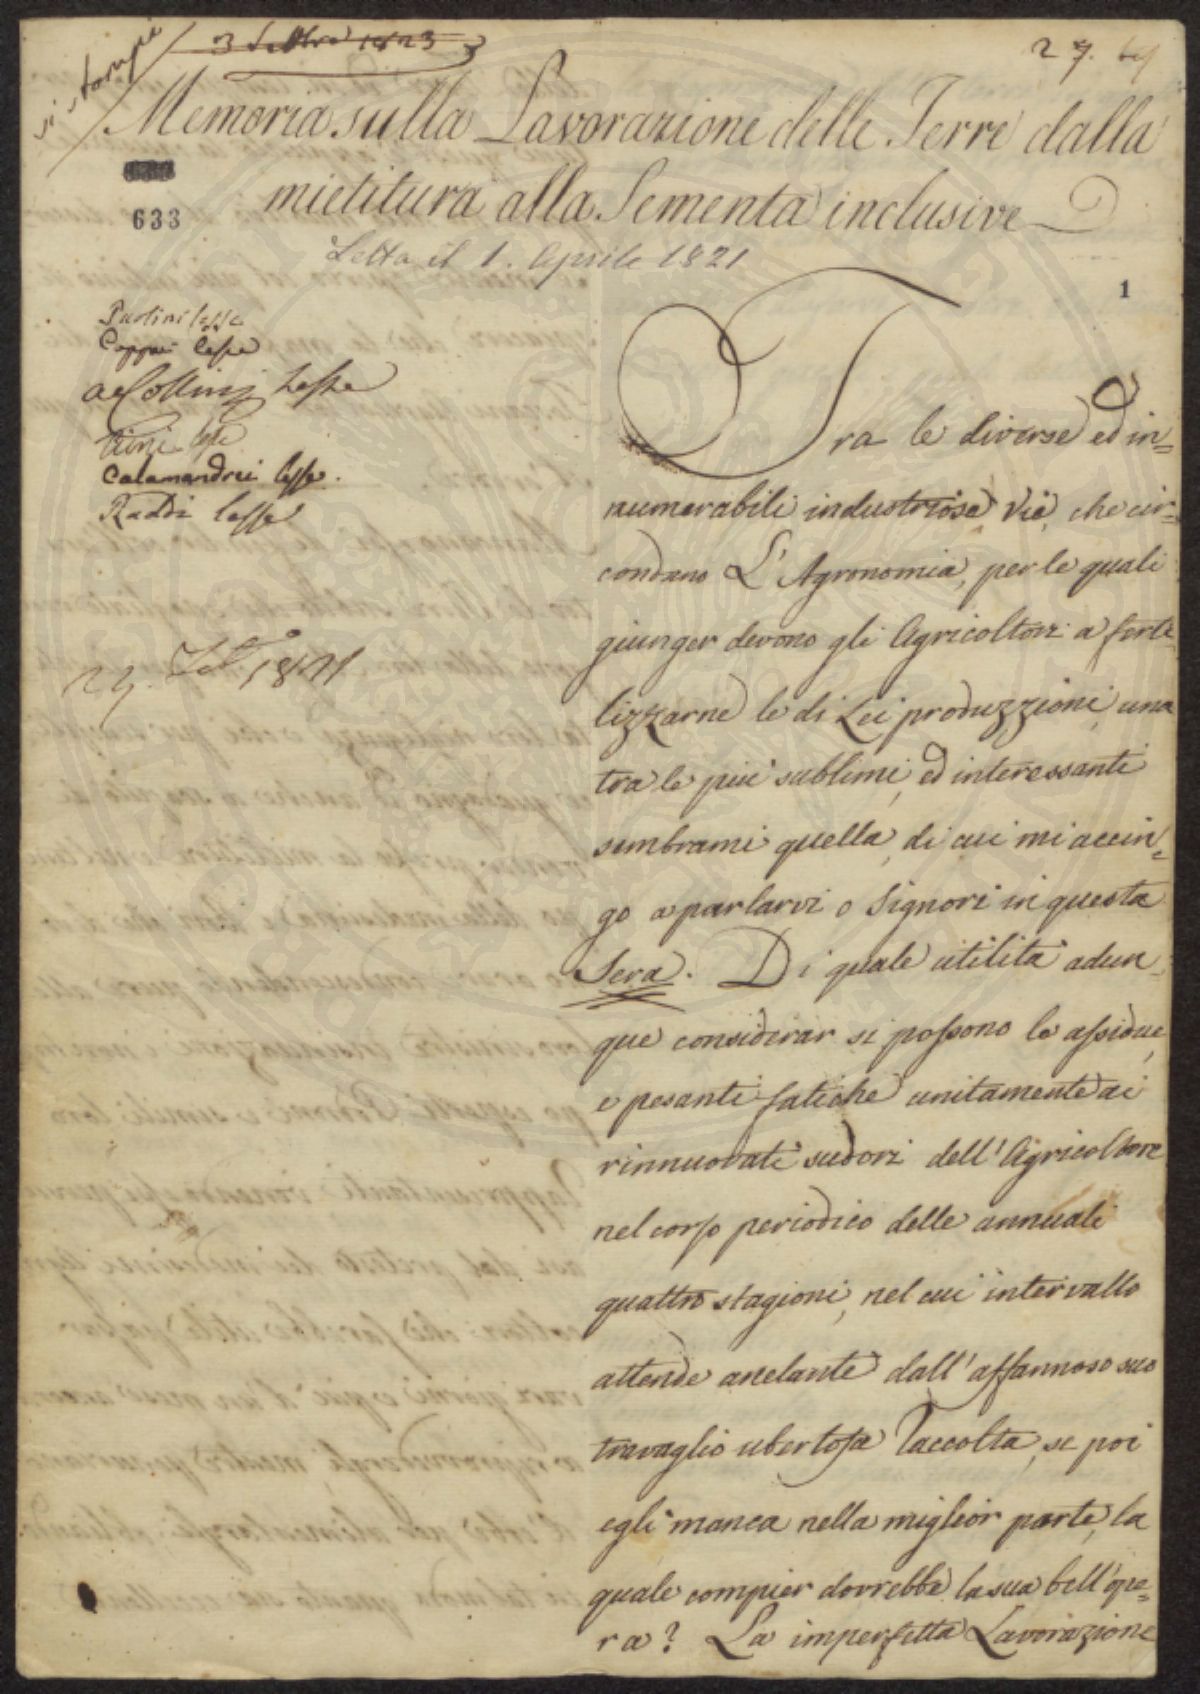 si stampi
3 Settbre 1823
27.
Memoria sulla Lavorazione delle Terre dalla
mietitura alla Sementa inclusive
633
Letta il 1. Aprile 1821
1
Paolini lesse
lesse
lesse
lesse
Calamandrei lesse.
Raddi lesse
1821
Tra le diverse ed in=
numerabili industriose vie, che cir=
condano L'Agronomia, per le quali
giunger devono gli Agricoltori a ferti
lizzarne le di Lei produzzioni, una
tra le piu sublimi, ed interessanti
sembrami quella, di cui mi accin=
go a parlarvi o Signori in questa
Sera. Di quale utilità adun
que considerar si possono le assidue,
e pesanti fatiche unitamente ai
rinnuovati sudori dell'Agricoltore
nel corso periodico delle annuali
quattro stagioni, nel cui intervallo
attende anelante dall'affannoso suo
travaglio ubertosa raccolta, se poi
egli manca nella miglior parte, la
quale compier dovrebbe la sua bell'ope=
ra? La imperfetta Lavorazione